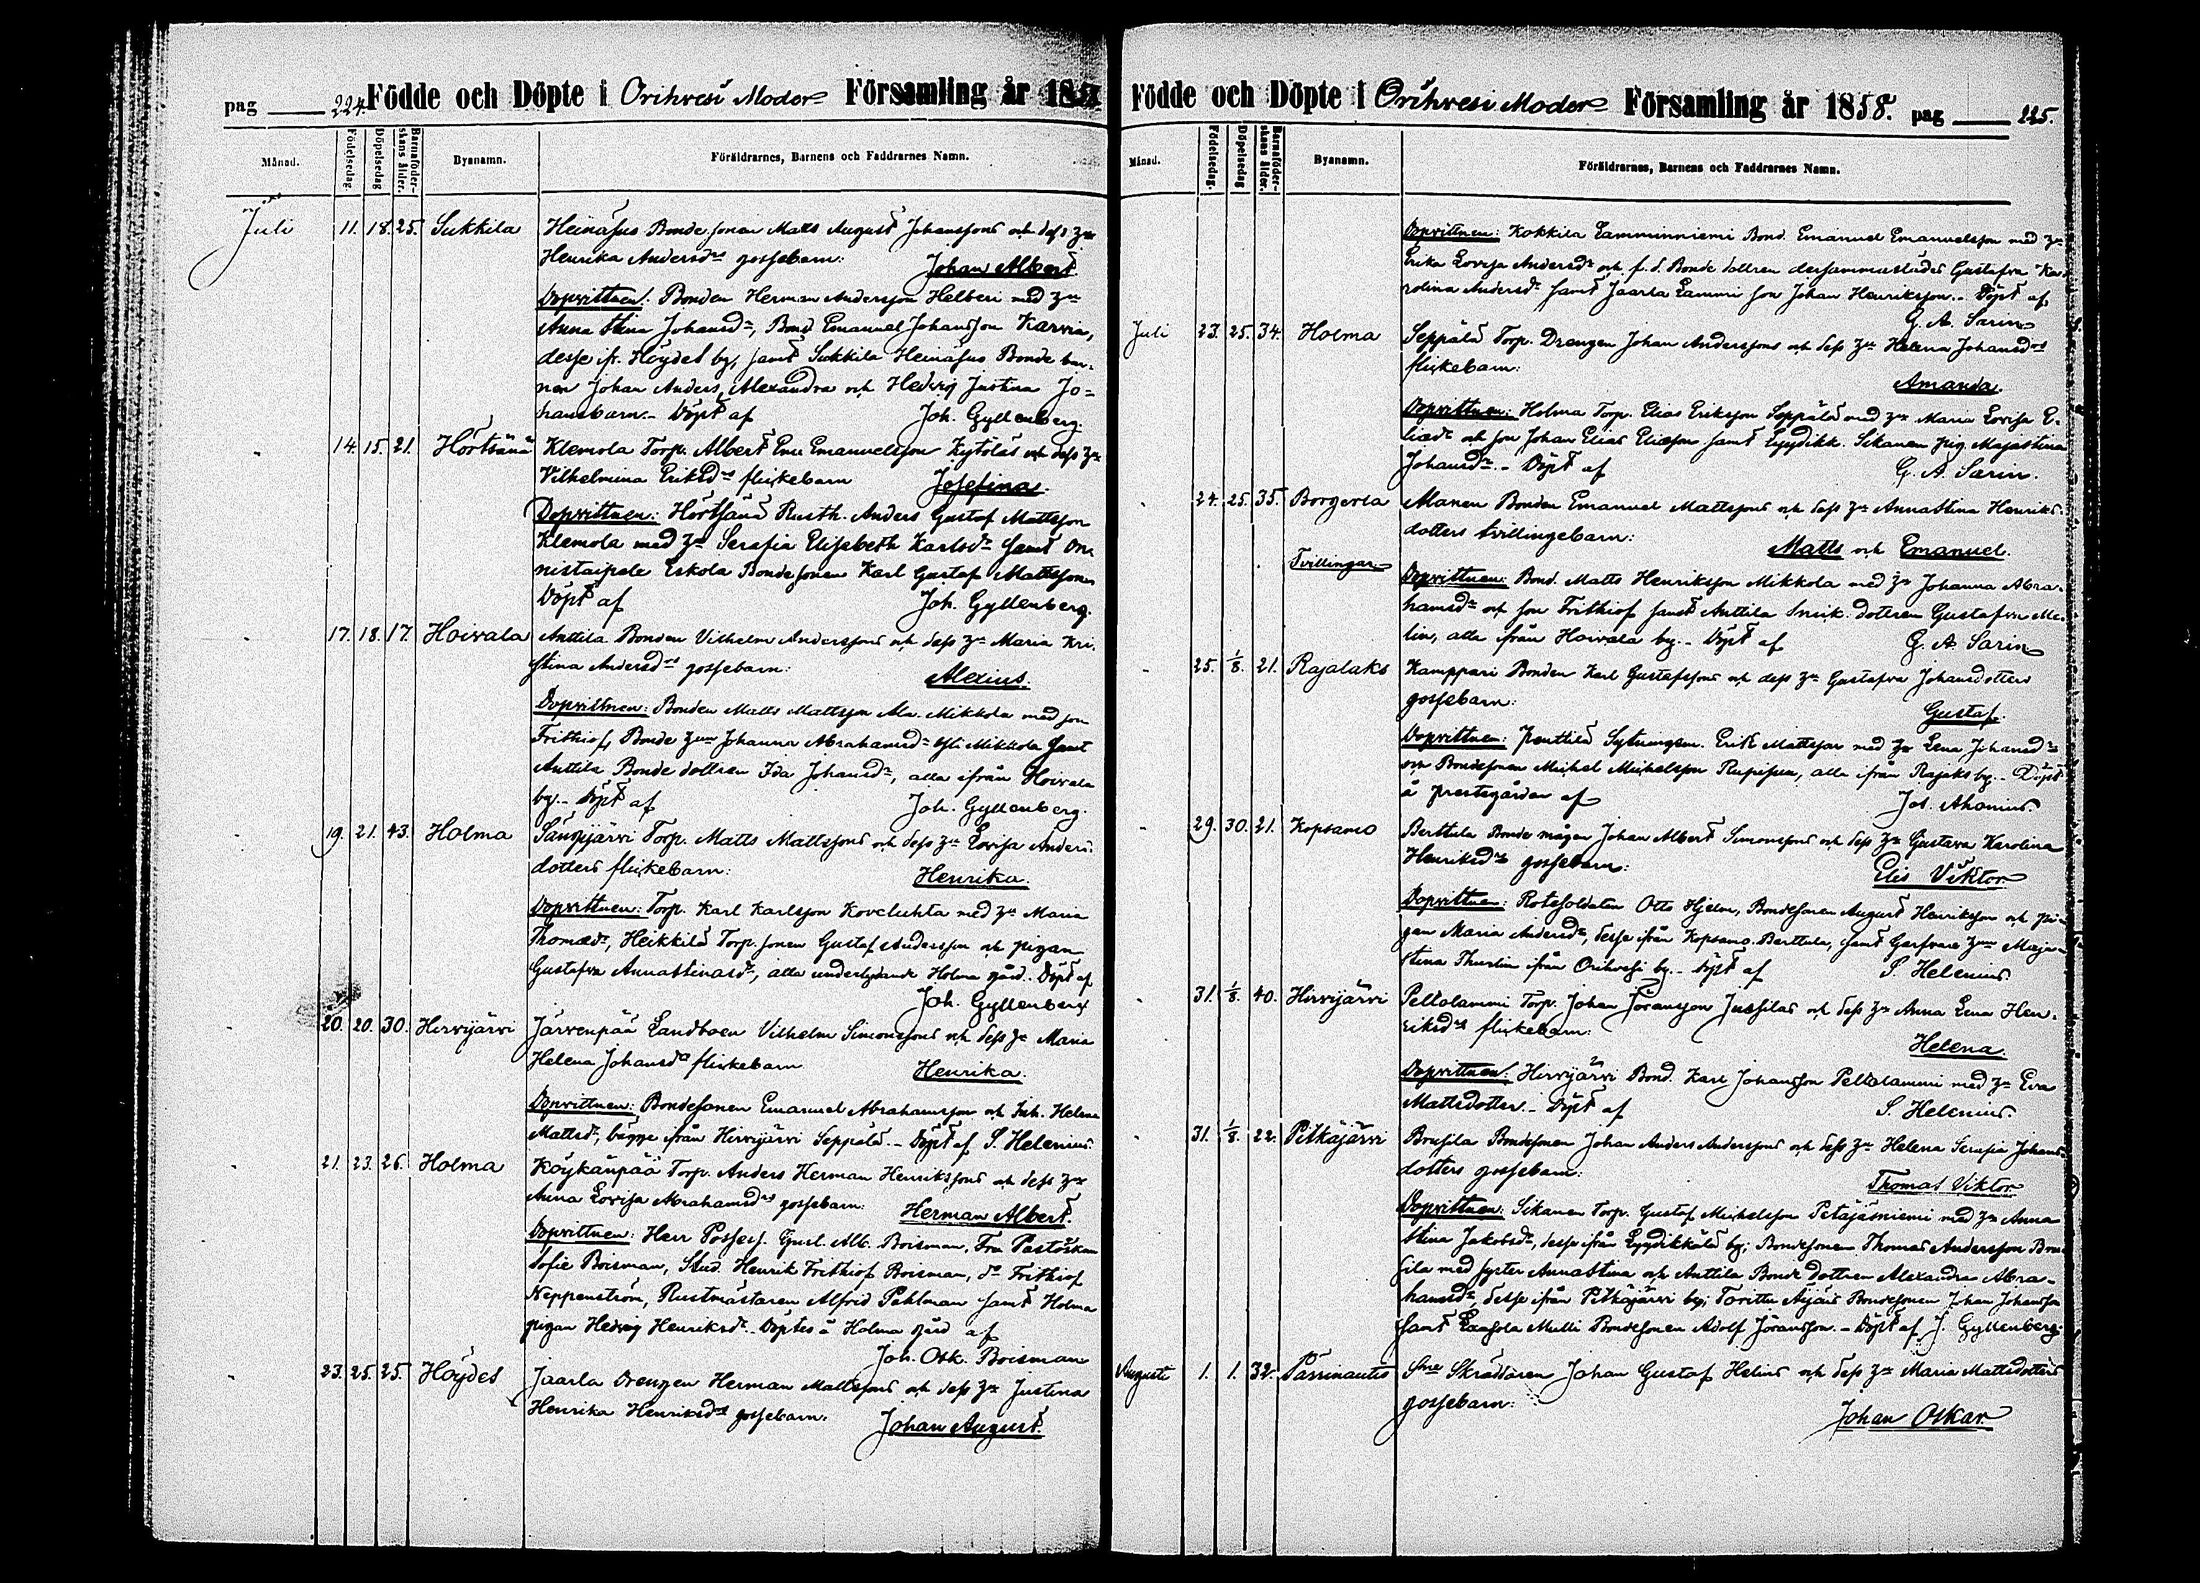 pag 224. Födde och Döpte i Orihvesi Moder Församling år 185
Månad. Födelsedag. Döpelsedag Barnaföder-skans ålder. Bynamn. Föräldrarnes, Barnens och Faddrarnes Namn.
Juli 11. 18. 25. Sukkila Heinäsus Bonde sonen Matts August Johanssons och dess hu
Henrika Andersdrs gossebarn: Johan Albert
Dopvittnen: Bonden Herman Andersson Helberi med hu
Anna Stina Johansdr, Bond. Emanuel Johansson Karvia,
desse ifr. Höydes by, samt Sukkila Heinäsus Bonde bar-
nen Johan Anders, Alexandra och Hedvig Justina Jo-
hansbarn.- Döpt af Joh. Gyllenberg.
14. 15. 21. Hörtsänä Klemola Torp. Albert Emanuelsson Kytölas och dess hu
Vilhelmina Eriksdrs flickebarn Josefina.
Dopvittnen: Hörtsänä Rusth. Anders Gustaf Mattsson
Klemola med hu Serafia Elisabeth Karlsdr samt On-
nistaipale Eskola Bondesonen Karl Gustaf Mattsson
Döpt af Joh. Gyllenberg.
17. 18. 17. Hoivala Anttila Bonden Vilhelm Anderssons och dess hu Maria Kri-
stina Andersdrs gossebarn: Alexius.
Dopvittnen: Bonden Matts Mattsson Ala-Mikkola med son
Frithiof, Bonde hun Johanna Abrahamsdr Yli Mikkola samt
Anttila Bonde dottren Ida Johansdr, alla ifrån Hoivala
by.- Döpt af Joh. Gyllenberg.
19. 21. 43. Holma Torp. Matts Mattssons och dess hu Lovisa Anders-
dotters flickebarn: Henrika.
Dopvittnen: Torp. Karl Karlsson Koveluhta med hu Maria
Thomasdr, Heikkilä Torp. sonen Gustaf Andersson och pigan
Gustafva Annastinasdr, alla underlydande Holma gård. Döpt af
Joh. Gyllenberg
20. 20. 30. Hirvijärvi Järvenpää Landboen Vilhelm Simonssons och dess hu Maria
Helena Johansdrs flickebarn Henrika.
Dopvittnen: Bondesonen Emanuel Abrahamsson och Inh. Helena
Mattsdr, bägge ifrån Hirvijärvi Seppälä.- Döpt af S. Helenius
21. 23. 26. Holma Köykänpää Torp. Anders Herman Henrikssons och dess hu
Anna Lovisa Abrahamsdrs gossebarn: Herman Albert.
Dopvittnen: Herr Possess. Gust. Alb. Boisman, Fru Pastorskan
Sofie Boisman, Stud. Henrik Frithiof Boisman, do Frithiof
Neppenström, Rustmästaren Alfrid Pehlman samt Holma
pigan Hedvig Henriksdr. Döptes å Holma gård af
Joh. Osk. Boisman
23. 25. 25. Höydes Jaarla Drengen Herman Mattssons och dess hu Justina
Henrika Henriksdrs gossebarn: Johan August.
Födde och Döpte i Orihvesi Moder Församling år 1858. pag 225.
Månad. Födelsedag. Döpelsedag Barnaföder-skans ålder. Bynamn. Föräldrarnes, Barnens och Faddrarnes Namn.
Dopvittnen: Kokkila Lamminniemi Bond. Emanuel Emanuelsson med hu
Erika Lovisa Andersdr och f.d. Bonde dottren dersammastädes Gustafva Ka-
rolina Andersdr samt Jaarla Lammi son Johan Henriksson.- Döpt af
G. A. Sarin
Juli 23. 25. 34. Holma Seppälä Torp. Drengen Johan Anderssons och dess hu Helena Johansdrs
flickebarn: Amanda.
Dopvittnen: Holma Torp. Elias Eriksson Seppälä med hu Maria Lovisa E-
liasdr och son Johan Elias Eliasson samt Lyydikk. Sikanen pig. Majastina
Johansdr.- Döpt af G. A. Sarin.
24. 25. 35. Borgerla Alanen Bonden Emanuel Mattssons och dess hu Annastina Henriks-
dotters tvillingebarn: Matts och Emanuel.
Tvillingar
Dopvittnen: Bond. Matts Henriksson Mikkola med hu Johanna Abra-
hamsdr och son Frithiof samt Anttila Snick. dottren Gustafva Me-
lin, alla ifrån Hoivala by.- Döpt af G. A. Sarin
25. 1/8. 21. Rajalaks Kamppari Bonden Karl Gustafssons och dess hu Gustafva Johansdotters
gossebarn: Gustaf.
Dopvittnen: Penttilä Sytningsm. Erik Mattsson med hu Lena Johansdr
och Bondesonen Michel Michelsson Rupisen, alla ifrån Rajaks by.- Döpt
å prestegården af Jos. Ahonius.
29. 30. 21. Kopsamo Berttula Bonde mågen Johan Albert Simonssons och dess hu Gustava Karolina
Henriksdrs gossebarn: Elis Viktor
Dopvittnen: Rotesoldaten Otto Hjelm, Bondesonen August Henriksson och pi-
gan Maria Andersdr, desse ifrån Kopsamo Berttula, samt Garfvare hun Maja-
stina Thurlin ifrån Orihvesi by.- Döpt af S. Helenius.
31. 1/8. 40. Hirvijärvi Peltolammi Torp. Johan Göransson Jussilas och dess hu Anna Lena Hen-
riksdrs flickebarn: Helena.
Dopvittnen: Hirvijärvi Bond. Karl Johansson Peltolammi med hu Eva
Mattsdotter.- Döpt af S. Helenius.
31. 1/8. 22. Pitkäjärvi Brusila Bondesonen Johan Anders Anderssons och dess hu Helena Serafia Johans-
dotters gossebarn: Thomas Viktor
Dopvittnen: Sikanen Torp. Gustaf Michelsson Petäjäsniemi med hu Anna
Stina Jakobsdr, desse ifrån Lyydikkälä by; Bondesonen Thomas Andersson Bru-
sila med syster Annastina och Anttila Bonde dottren Alexandra Abra-
hamsdr desse ifrån Pitkäjärvi by; Torittu Äijäis Bondesonen Johan Johansson
samt Längsla Mulli Bondesonen Adolf Göransson.- Döpt af J. Gyllenberg.
Augusti 1. 1. 32. Pässinautio Skräddaren Johan Gustaf Helins och dess hu Maria Mattsdotters
gossebarn: Johan Oskar